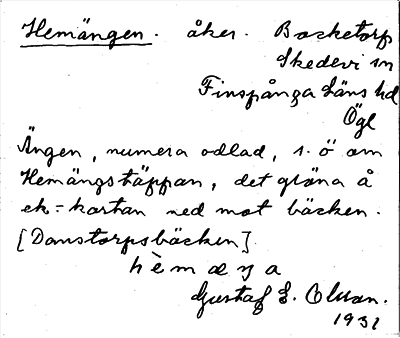 Hemängen. åker. Backetorp
Skedevi sn
Finspånga läns hd
Ögl
Ängen, numera odlad, s. ö om
Hemängstäppan, det gröna å
ek=kartan ned mot bäcken.
[Danstorpsbäcken]
hèmæŋa
Gustaf E. Olsson.
1931